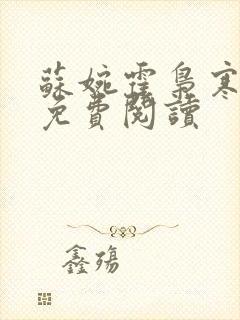 蘇婉霍梟寒
免費閱讀
鑫殤